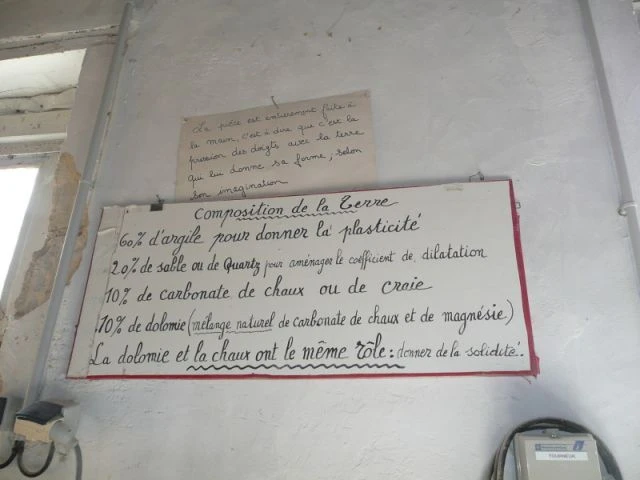 La pièce est entièrement faite à
la main, c'est à dire que c'est la
pression des doigts avec la terre
qui lui donne sa forme, selon
son imagination
Composition de la Terre
60% d'argile pour donner la plasticité
20% de sable ou de Quartz pour aménager le coéfficient de dilatation
10% de carbonate de chaux ou de craie
10% de dolomie (mélange naturel de carbonate de chaux et de magnésie)
La dolomie et la chaux ont le même rôle : donner de la solidité.
TOURNEUR